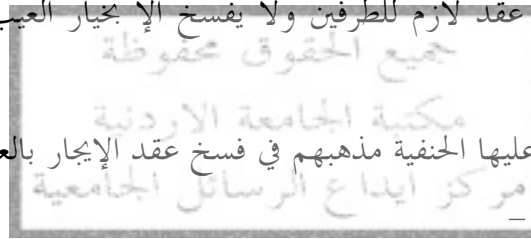 عقد لازم للطرفين ولا يفسخ الإ بخيار العيب
جميع الحقوق محفوظة
مكتبة الجامعة الاردنية
عليها الحنفية مذهبهم في فسخ عقد الإيجار
مركز ايداع الرسائل الجامعية